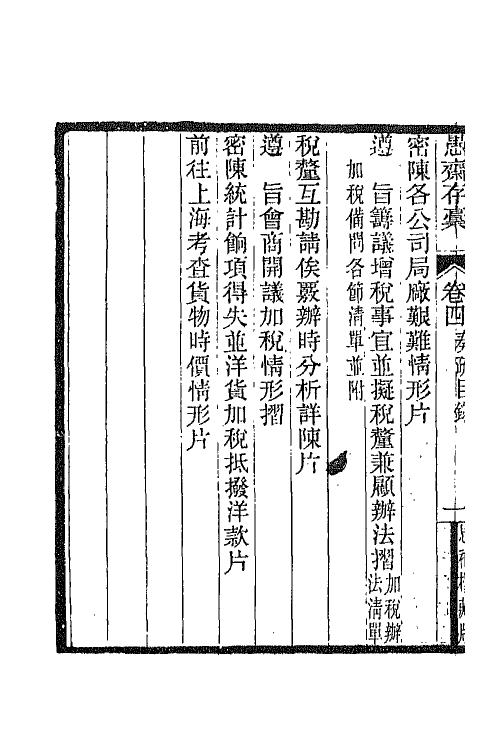 愚齋存稾 卷四 奏疏目錄 一
密陳各公司局廠艱難情形片
遵 旨籌議增稅事宜並擬稅釐兼顧辦法摺 加稅辦法清單
加稅備問各節清單並附
稅釐互勘請俟覈辦時分析詳陳片
遵 旨會商開議加稅情形摺
密陳統計餉項得失並洋貨加稅抵撥洋款片
前往上海考查貨物時價情形片